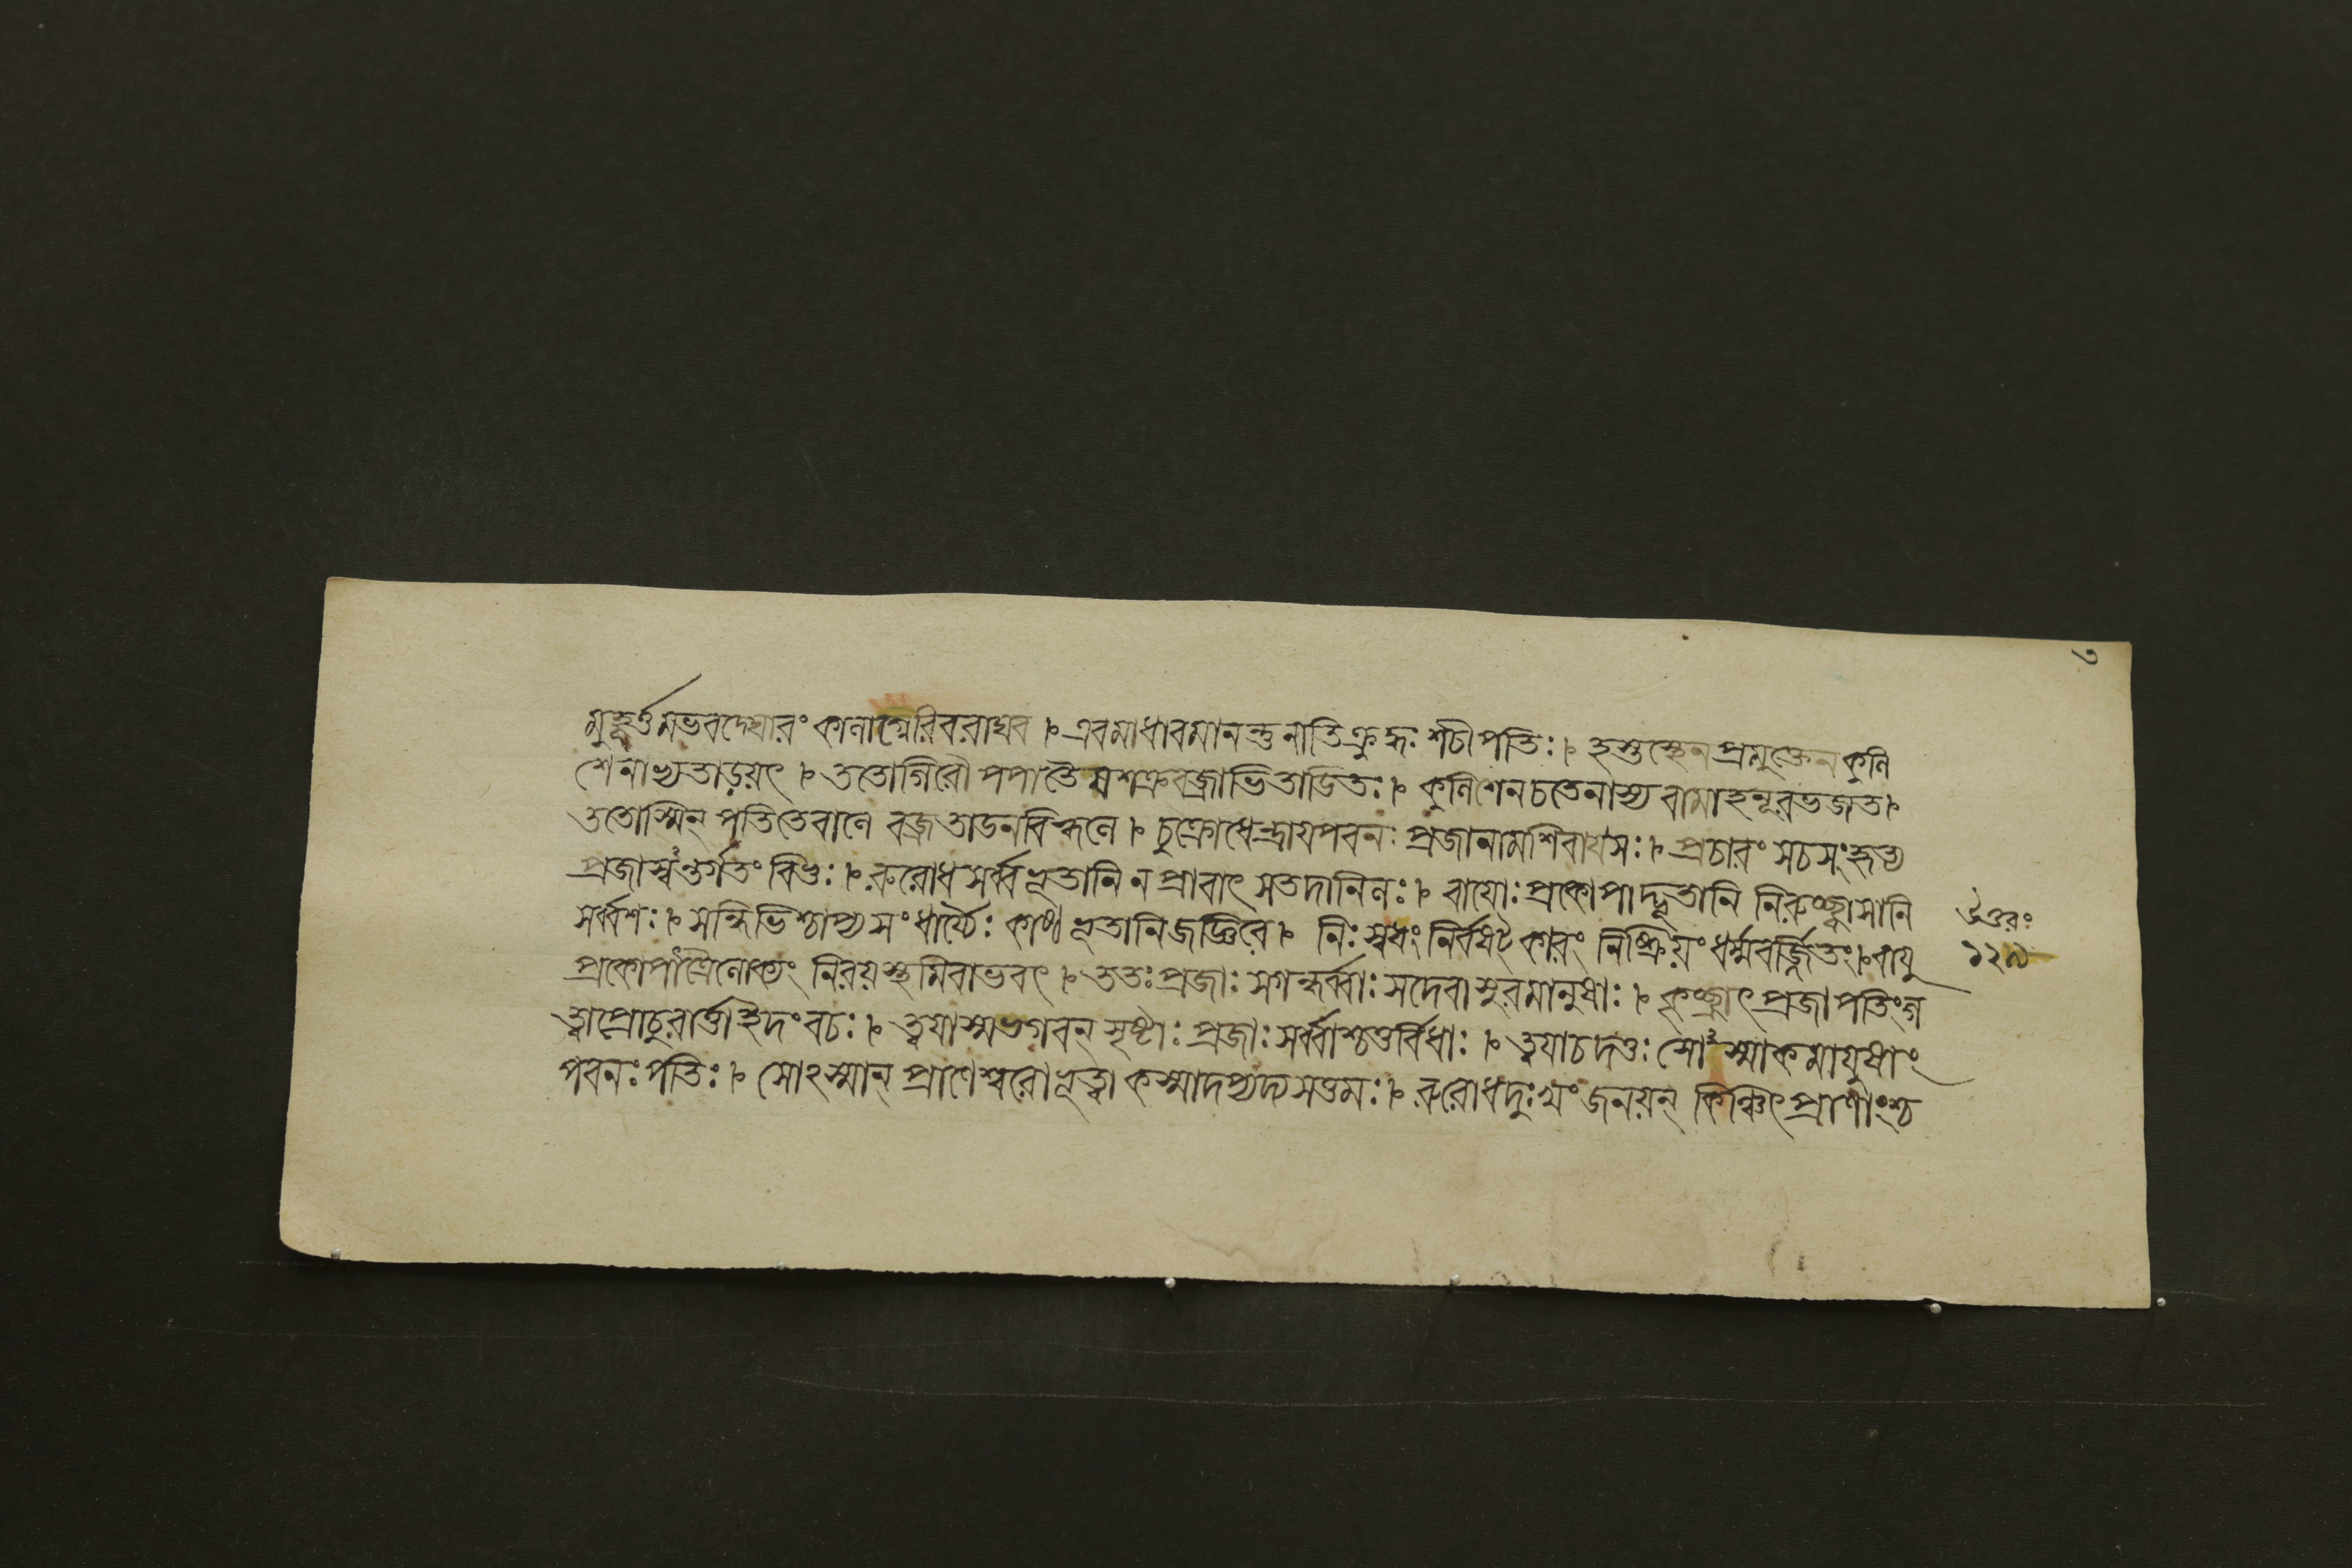 ৩
মুহূর্ত্তমভবদ্ঘোরং কালাগ্নেরিবরাঘব ৷৹ এবমাধাবমানন্তু নাতিক্রুদ্ধঃ শচীপতিঃ ৷৹ হস্তস্থেন প্রমুক্তেন কুলি
শেনাভ্যতাড়য়ৎ ৷৹ ততোগিরৌ পপাতৈষ শক্রবজ্রাভিতাডিতঃ ৷৹ কুলিশেন চ তেনাস্য বামাহনূরভজত ৷৹
ততোস্মিন্ পতিতেবালে বজ্রতাডনবিহ্বলে ৷৹ চুক্রোধেন্দ্রায়পবনঃ প্রজানামশিবায়সঃ ৷৹ প্রচারং সচসংহৃত্য
প্রজাস্বন্তর্গতং বিভুঃ ৷৹ রুরোধ সর্ব্বভূতানি ন প্রাবাৎ সতদানিলঃ ৷৹ বায়োঃ প্রকোপাদ্ভূতানি নিরুচ্ছ্বাসানি
সর্ব্বশঃ ৷৹ সন্ধিভিশ্চাপ্য সংধার্য্যৈঃ কাষ্ঠভূতানিজজ্ঞিরে ৷৹ নিঃস্বধং নির্বষট্কারং নিষ্ক্রিয়ং ধর্ম্মবর্জ্জিতং ৷৹ বায়ু
প্রকোপাত্ত্রৈলোক্যং নিরয়স্থমিবাভবৎ ৷৹ ততঃ প্রজাঃ সগন্ধর্ব্বাঃ সদেবাসুরমানুষাঃ ৷৹ কৃচ্ছ্রাৎ প্রজাপতিংগ
ত্বাপ্রোচুরার্ত্তাইদং বচঃ ৷৹ ত্বয়াস্মভগবন্ সৃষ্টাঃ প্রজাঃ সর্ব্বাশ্চতুর্বিধাঃ ৷৹ ত্বয়াচদত্তঃ সোঽস্মাকমায়ুষাং
পবনঃ পতিঃ ৷৹ সোঽস্মান্ প্রাণেশ্বরোভূত্বা কস্মাদপ্যদ্য সত্তমঃ ৷৹ রুরোধদুঃখং জনয়ন্ কিঞ্চিৎ প্রাণীংশ্চ
উত্তরং
১২৯